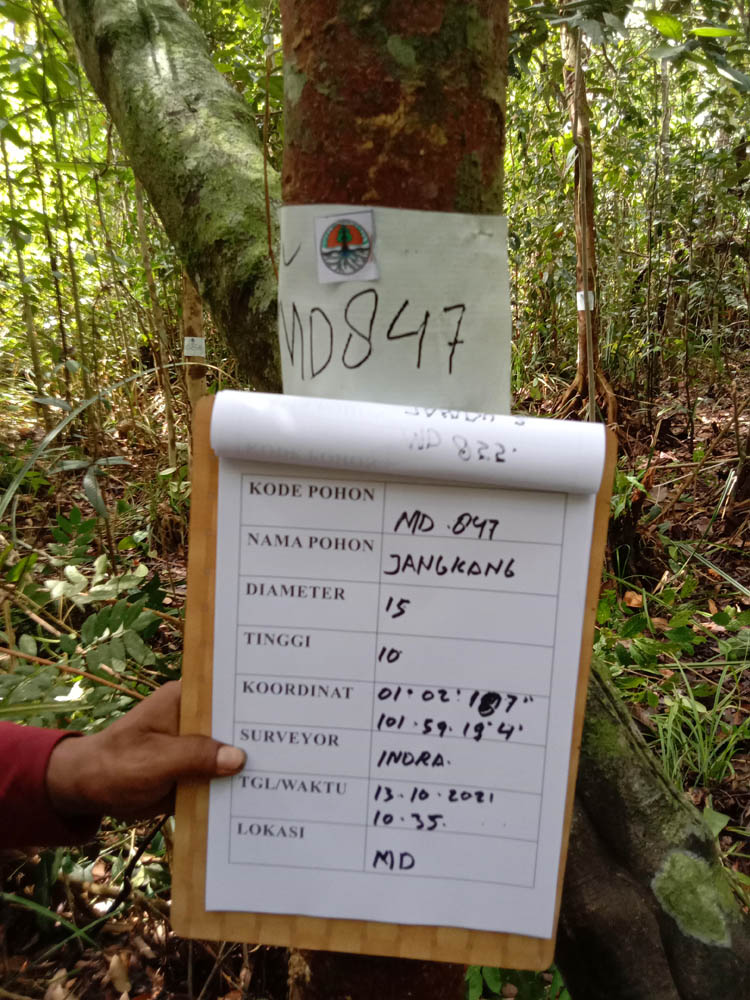 MD 847
MD 833.
KODE POHON MD.847
NAMA POHON JANGKANG
DIAMETER 15
TINGGI 10
KOORDINAT 01° 02' 7"
101.59.19'4'
SURVEYOR INDRA.
TGL/WAKTU 13.10.2021
10.35.
LOKASI MD